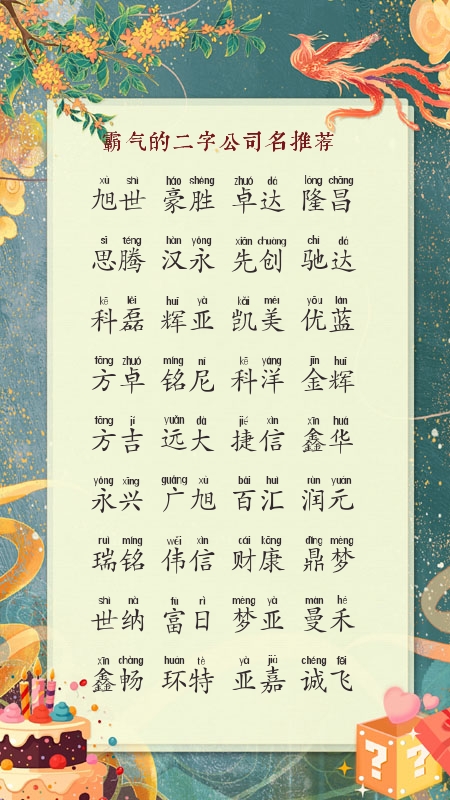 霸气的二字公司名推荐
xù shì háo shèng zhuó dá lóng chāng
旭世 豪胜 卓达 隆昌
sī téng hàn yǒng xiān chuàng chí dá
思腾 汉永 先创 驰达
kē lěi huī yà kǎi měi yōu lán
科磊 辉亚 凯美 优蓝
fāng zhuó míng ní kē yáng jīn huī
方卓 铭尼 科洋 金辉
fāng jí yuǎn dà jié xìn xīn huá
方吉 远大 捷信 鑫华
yǒng xīng guǎng xù bǎi huì rùn yuán
永兴 广旭 百汇 润元
ruì míng wěi xìn cái kāng dǐng mèng
瑞铭 伟信 财康 鼎梦
shì nà fù rì mèng yà màn hé
世纳 富日 梦亚 曼禾
xīn chàng huán tè yà jiā chéng fēi
鑫畅 环特 亚嘉 诚飞
? ?